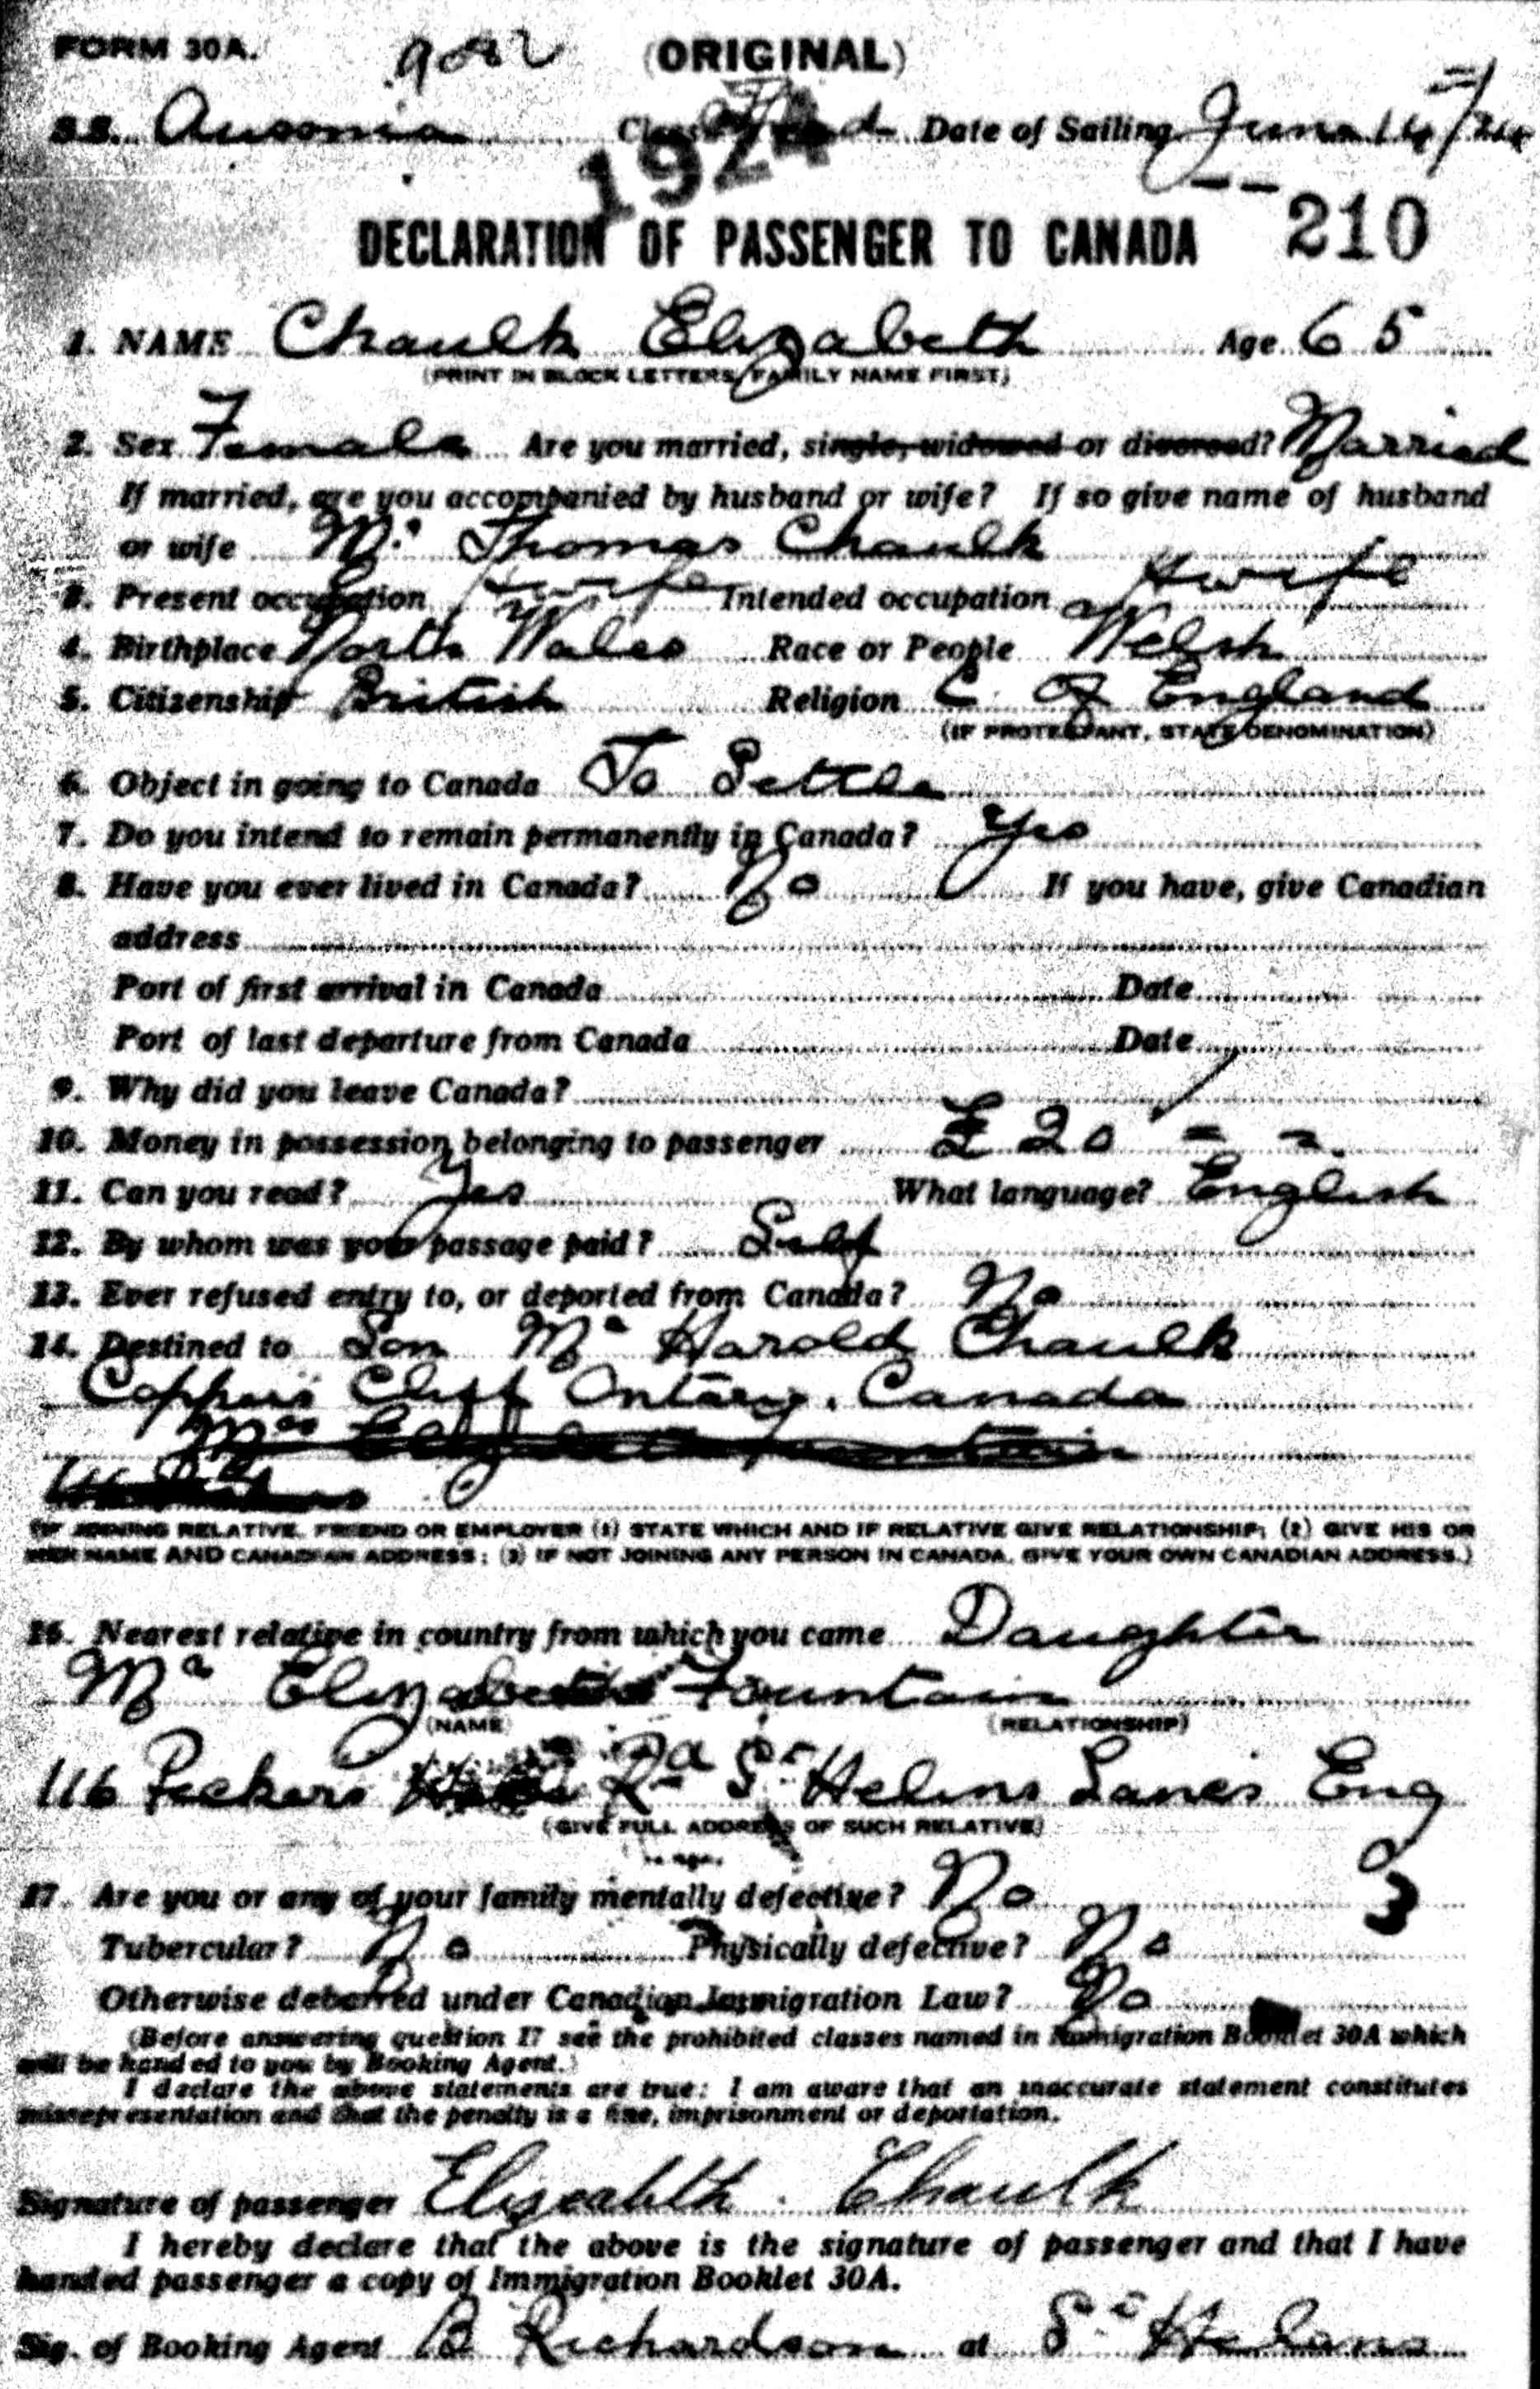 FORM 30A. (ORIGINAL)
S.S. Ausonia Class 3rd Date of Sailing June 14/24
1924
210
DECLARATION OF PASSENGER TO CANADA
1. NAME Chaulk Elizabeth Age 65
(PRINT IN BLOCK LETTERS, FAMILY NAME FIRST)
2. Sex Female Are you married, single, widowed or divorced? Married
If married, are you accompanied by husband or wife? If so give name of husband
or wife Mr Thomas Chaulk
3. Present occupation Hwife Intended occupation Hwife
4. Birthplace North Wales Race or People Welsh
5. Citizenship British Religion C of England
(IF PROTESTANT, STATE DENOMINATION)
6. Object in going to Canada To Settle
7. Do you intend to remain permanently in Canada? Yes
8. Have you ever lived in Canada? No If you have, give Canadian
address
Port of first arrival in Canada Date
Port of last departure from Canada Date
9. Why did you leave Canada?
10. Money in possession belonging to passenger £20 - -
11. Can you read? Yes What language? English
12. By whom was your passage paid? Self
13. Ever refused entry to, or deported from Canada? No
14. Destined to Son Mr Harold Chaulk
Coppers Cliff Ontario. Canada
(IF JOINING RELATIVE, FRIEND OR EMPLOYER (1) STATE WHICH AND IF RELATIVE GIVE RELATIONSHIP; (2) GIVE HIS OR
HER NAME AND CANADIAN ADDRESS; (3) IF NOT JOINING ANY PERSON IN CANADA, GIVE YOUR OWN CANADIAN ADDRESS.)
16. Nearest relative in country from which you came Daughter
Mrs Elizabeth Fountain
(NAME) (RELATIONSHIP)
116 Peckers Rd St Helens Lancs Eng
(GIVE FULL ADDRESS OF SUCH RELATIVE)
17. Are you or any of your family mentally defective? No 3
Tubercular? No Physically defective? No
Otherwise debarred under Canadian Immigration Law? No
(Before answering question 17 see the prohibited classes named in Immigration Booklet 30A which
will be handed to you by Booking Agent.)
I declare the above statements are true: I am aware that an inaccurate statement constitutes
misrepresentation and that the penalty is a fine, imprisonment or deportation.
Signature of passenger Elizeabth Chaulk
I hereby declare that the above is the signature of passenger and that I have
handed passenger a copy of Immigration Booklet 30A.
Sig. of Booking Agent B Richardson at St Helens